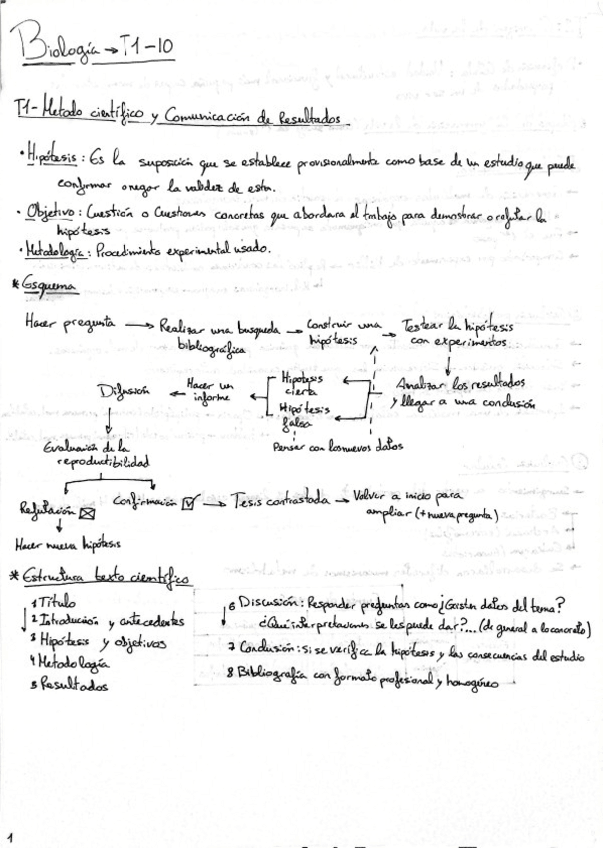 Biología → T1-10
T1- Metodo científico y Comunicación de Resultados
· Hipótesis: Es la suposición que se establece provisionalmente como base de un estudio que puede
confirmar o negar la validez de esta.
· Objetivo: Cuestión o Cuestiones concretas que abordara el trabajo para demostrar o refutar la
hipótesis
· Metodología: Procedimiento experimental usado.
* Esquema
Hacer pregunta → Realizar una busqueda bibliográfica → Construir una hipótesis → Testear la hipótesis con experimentos
Analizar los resultados y llegar a una conclusión
Hipotesis cierta
Hipótesis falsa
Pensar con los nuevos datos
Hacer un informe
Difusión
Evaluación de la
reproductibilidad
Refutación ☒
Confirmación ☑ → Tesis contrastada → Volver a inicio para
ampliar (+ nueva pregunta)
Hacer nueva hipótesis
* Estructura texto científico
1 Título
2 Introducción y antecedentes
3 Hipótesis y objetivos
4 Metodología
5 Resultados
6 Discusión: Responder preguntas como ¿Existen datos del tema?
¿Qué interpretaciones se les puede dar?... (de general a lo concreto)
7 Conclusión: si se verifica la hipótesis y las consecuencias del estudio
8 Bibliografía con formato profesional y homogéneo
1